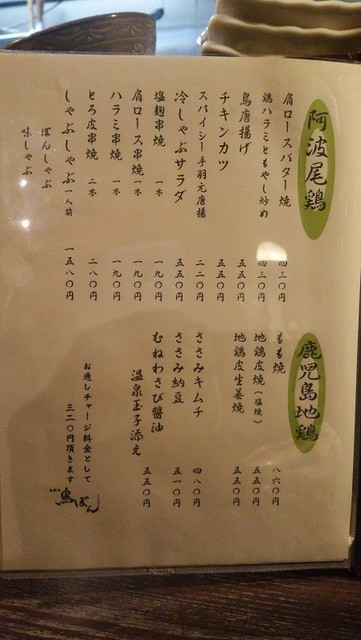 阿波尾鶏
肩ロースバター焼 四三〇円
鶏ハラミともやし炒め 四三〇円
鳥唐揚げ 五五〇円
チキンカツ 五五〇円
スパイシー手羽元唐揚 二二〇円
冷しゃぶサラダ 五五〇円
塩麹串焼 一本 一九〇円
肩ロース串焼 一本 一九〇円
ハラミ串焼 一本 一九〇円
とろ皮串焼 二本 二八〇円
しゃぶしゃぶ 一人前 一五八〇円
ぽんしゃぶ
味しゃぶ
鹿児島地鶏
もも焼 八六〇円
地鶏皮焼（塩焼） 五五〇円
地鶏皮生姜焼 五五〇円
ささみキムチ 四八〇円
ささみ納豆 五一〇円
むねわさび醬油
温泉玉子添え 五五〇円
お通しチャージ料金として
三二〇円頂きます
鳥ぼん